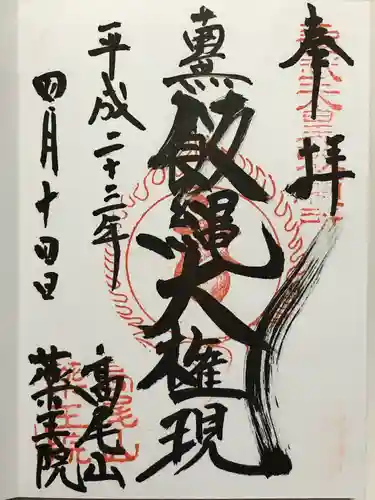 奉拝
飯縄大権現
平成二十三年
四月十四日
高尾山
薬王院